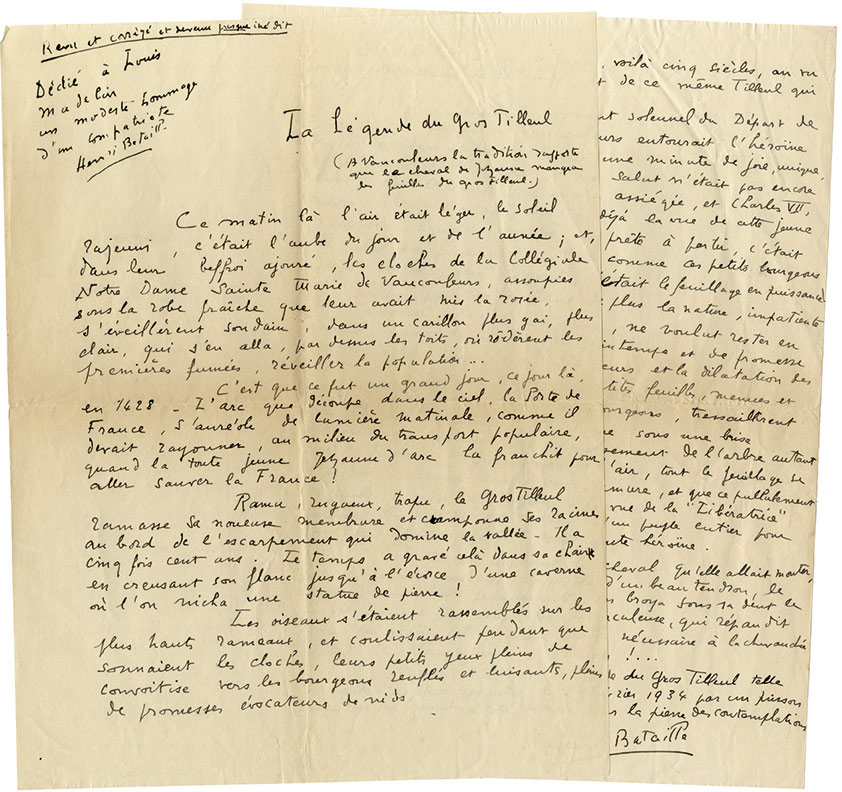 Revu et corrigé et devenu presque inédit
Dédié à Louis
Madelin
un modeste hommage
d'un compatriote
Henri Bataille
La Légende du Gros Tilleul
(A Vaucouleurs la tradition rapporte
que le cheval de Jehanne mangea
des feuilles du gros tilleul.)
Ce matin là l'air était léger, le soleil
rajeuni, c'était l'aube du jour et de l'année ; et,
dans leur beffroi ajouré, les cloches de la Collégiale
Notre Dame Sainte Marie de Vaucouleurs, assoupies
sous la robe fraîche que leur avait mis la rosée,
s'éveillèrent soudain, dans un carillon plus gai, plus
clair, qui s'en alla, par dessus les toits, où rôdèrent les
premières fumées, réveiller la population...
C'est que ce fut un grand jour, ce jour là,
en 1428 - L'arc que découpe dans le ciel, la Porte de
France, s'auréole de lumière matinale, comme il
devait rayonner, au milieu du transport populaire,
quand la toute jeune Jehanne d'arc la franchit pour
aller sauver la France !
Ramu, rugueux, trapu, le Gros Tilleul
ramasse sa noueuse membrure et cramponne ses racines
au bord de l'escarpement qui domine la vallée - Il a
cinq fois cent ans. Le temps a gravé cela dans sa chair
en creusant son flanc jusqu'à l'écorce d'une caverne
où l'on nicha une statue de pierre !
Les oiseaux s'étaient rassemblés sur les
plus hauts rameaux, et coulissaient pendant que
sonnaient les cloches, leurs petits yeux pleins de
convoitise vers les bourgeons renflés et luisants, pleins
de promesses évocateurs de nids
voilà cinq siècles, au vu
de ce même Tilleul qui
solennel du Départ de
entourait l'héroïne
une minute de joie, unique,
Salut n'était pas encore
assiégée, et Charles VII,
déjà la vue de cette jeune
prête à partir, c'était
comme ces petits bourgeons
était le feuillage en puissance
plus la nature, impatiente
, ne voulut rester en
et de promesse
et la dilatation des
feuilles, menues et
bourgeons, tressaillirent
sous une brise
de l'arbre autant
l'air, tout le feuillage se
, et que ce pullulement
vue de la "Libératrice"
d'un peuple entier pour
héroïne.
cheval qu'elle allait monter,
d'un beau tendron, le
broya sous sa dent la
, qui répandit
nécessaire à la chevauchée
!....
du Gros Tilleul telle
1934 par un pinson
la pierre des contemplations
Bataille